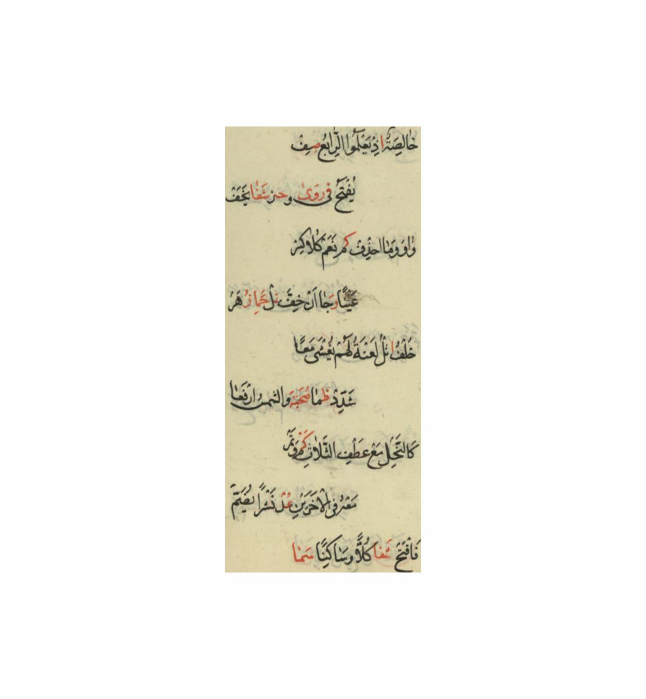 خَالِصَةٌ اِذْ يَعْلَمُوا الرَّابِعُ صِفْ
يُفْتَحُ فِي رَوَى وَحُزْ شَفَا يَخِفْ
وَاوَ وَمَا احْذِفْ كَمْ نَعَمْ كُلًّا كَسَرْ
عَيْنًا رَجَا اَنْ خِفَّ نَلْ حِمًا زُهَرْ
خُلْفُ اتْلُ لَعْنَةُ لَهُمْ يُغْشِي مَعًا
شَدِّدْ ظَمَا صُحْبَةٌ وَالشَّمْسُ ارْفَعَا
كَالنَّحْلِ مَعْ عَطْفِ الثَّلَاثِ كَمْ وَثَمْ
مَعْهُ فِي الْاٰخَرَيْنِ عُدْ نَشْرًا يُضَمْ
فَافْتَحْ شَفَا كُلًّا وَسَاكِنًا سَمَا